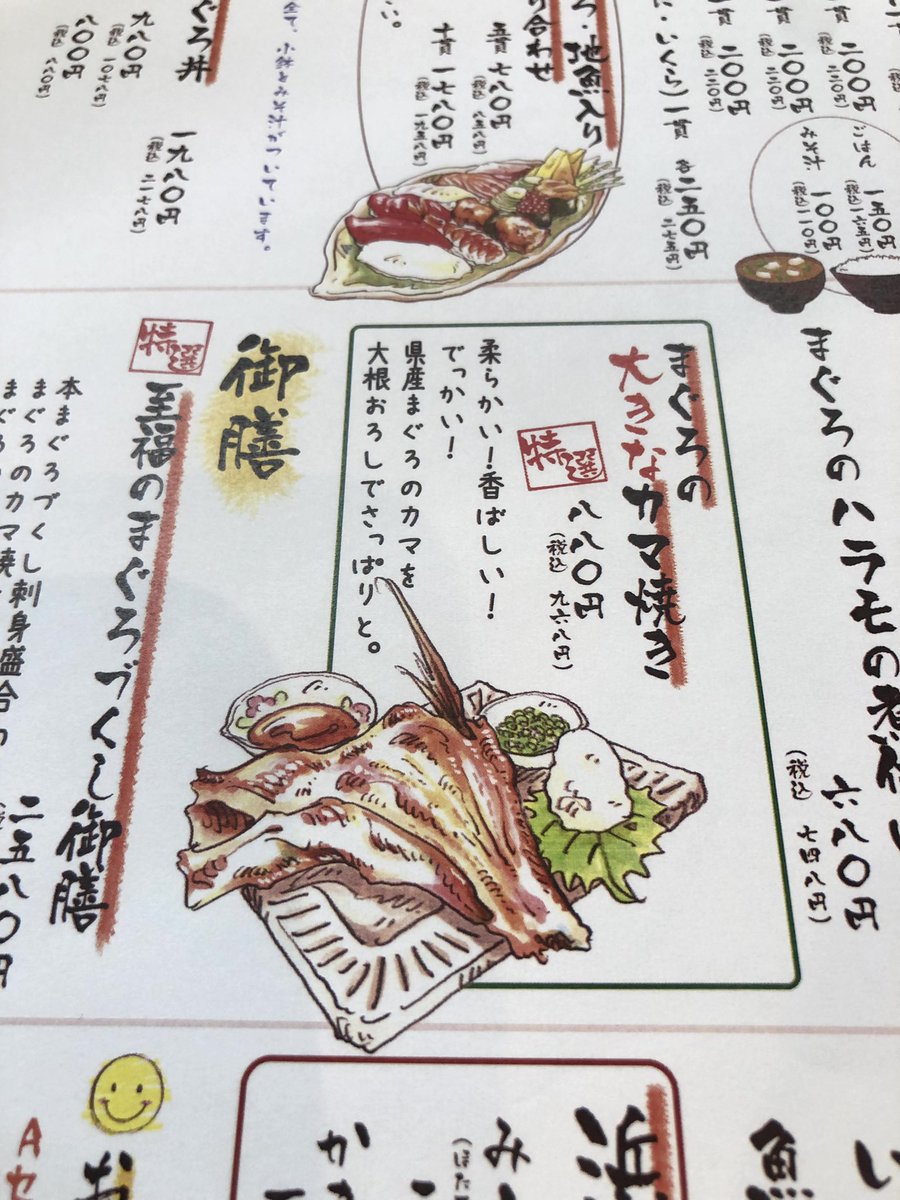 一貫 二〇〇円
(税込 二二〇円)
二〇〇円
(税込 二二〇円)
一貫 二〇〇円
(税込 二二〇円)
に・いくら)一貫 各二五〇円
(税込 二七五円)
ごはん 一五〇円
(税込 一六五円)
みそ汁 一〇〇円
(税込 一一〇円)
ろ・地魚入り
り合わせ
五貫 七八〇円
(税込 八五八円)
十貫 一七八〇円
(税込 一九五八円)
い。
全て、小鉢とみそ汁がついています。
ぐろ丼
一九八〇円
(税込 二一七八円)
九八〇円
(税込 一〇七八円)
八〇〇円
(税込 八八〇円)
まぐろのハラモの煮付け
六八〇円
(税込 七四八円)
まぐろの
大きなカマ焼き
特選
八八〇円
(税込 九六八円)
柔らかい!香ばしい!
でっかい!
県産まぐろのカマを
大根おろしでさっぱりと。
御膳
特選
至福のまぐろづくし御膳
二五八〇円
本まぐろづくし刺身盛合わ
まぐろのカマ焼
まぐろ
浜
み
(ほた
か
魚
い
お
Aセ